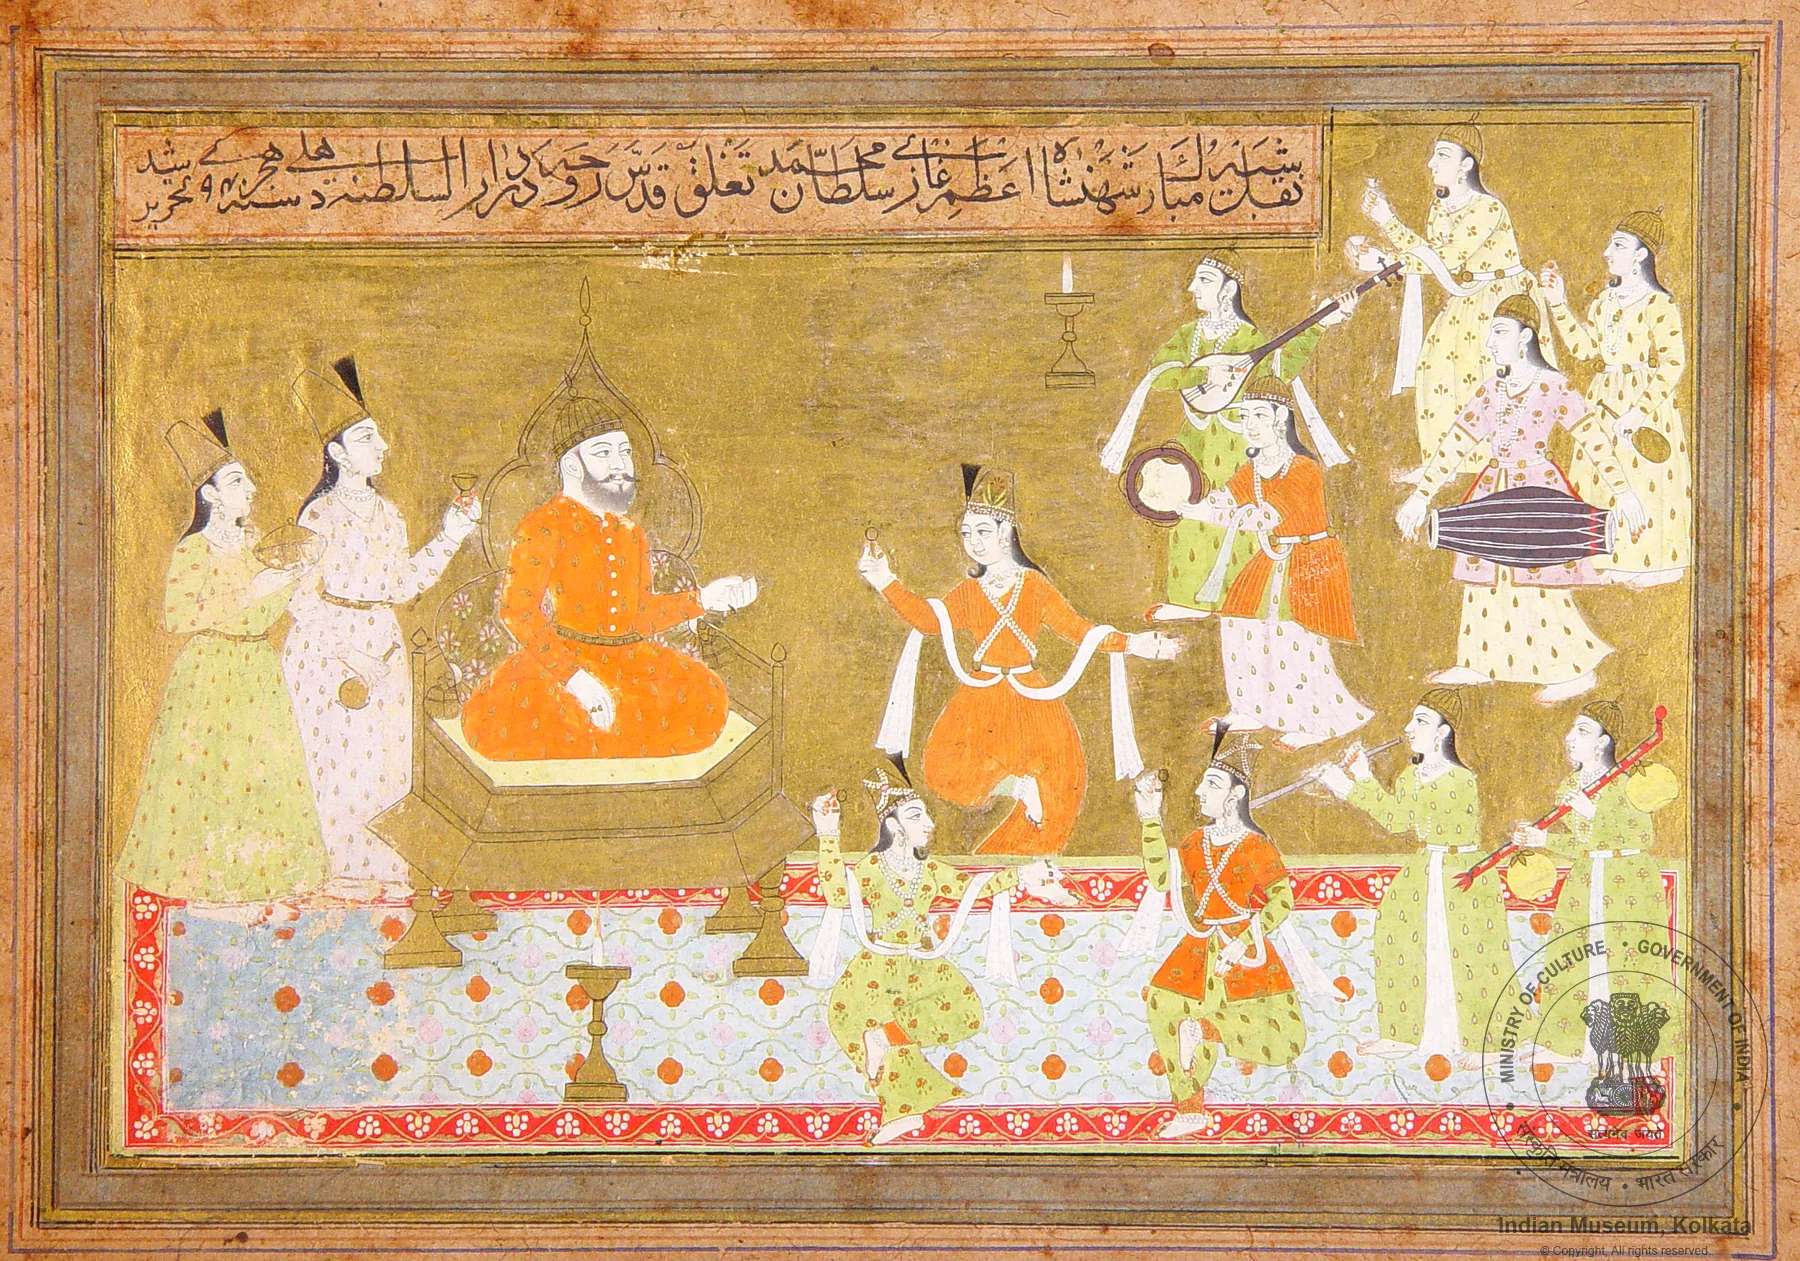 نقل شبیه مبارک شهنشاه اعظم غازے سلطان محمد تغلق قدّس روحه در دار السلطنة دهلے سنه هجرے تحریر شد
MINISTRY OF CULTURE • GOVERNMENT OF INDIA
सत्यमेव जयते
संस्कृति मंत्रालय • भारत सरकार
Indian Museum, Kolkata
© Copyright, All rights reserved.